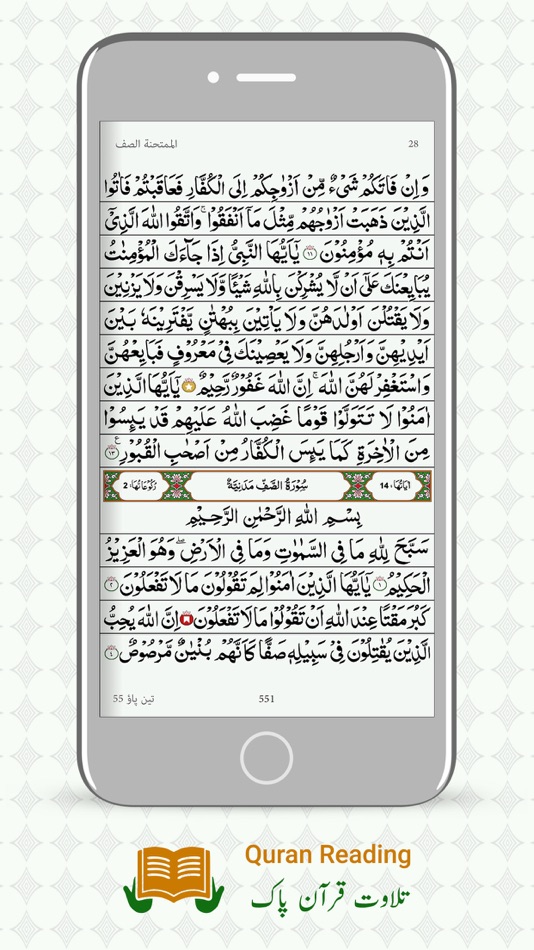 الممتحنة الصف 28
وَاِنۡ فَاتَكُمۡ شَىۡءٌ مِّنۡ اَزۡوٰجِكُمۡ اِلَى الۡكُفَّارِ فَعَاقَبۡتُمۡ فَاٰتُوا
الَّذِيۡنَ ذَهَبَتۡ اَزۡوٰجُهُمۡ مِّثۡلَ مَاۤ اَنۡفَقُوۡاؕ وَاتَّقُوا اللّٰهَ الَّذِىۡۤ
اَنۡتُمۡ بِهٖ مُؤۡمِنُوۡنَ ۝۱۱ يٰۤاَيُّهَا النَّبِىُّ اِذَا جَآءَكَ الۡمُؤۡمِنٰتُ
يُبَايِعۡنَكَ عَلٰٓى اَنۡ لَّا يُشۡرِكۡنَ بِاللّٰهِ شَيۡـًٔا وَّلَا يَسۡرِقۡنَ وَلَا يَزۡنِيۡنَ
وَلَا يَقۡتُلۡنَ اَوۡلٰدَهُنَّ وَلَا يَاۡتِيۡنَ بِبُهۡتٰنٍ يَّفۡتَرِيۡنَهٗ بَيۡنَ
اَيۡدِيۡهِنَّ وَاَرۡجُلِهِنَّ وَلَا يَعۡصِيۡنَكَ فِىۡ مَعۡرُوۡفٍ فَبَايِعۡهُنَّ
وَاسۡتَغۡفِرۡ لَهُنَّ اللّٰهَؕ اِنَّ اللّٰهَ غَفُوۡرٌ رَّحِيۡمٌ يٰۤاَيُّهَا الَّذِيۡنَ
اٰمَنُوۡا لَا تَتَوَلَّوۡا قَوۡمًا غَضِبَ اللّٰهُ عَلَيۡهِمۡ قَدۡ يَـئِسُوۡا
مِنَ الۡاٰخِرَةِ كَمَا يَـئِسَ الۡكُفَّارُ مِنۡ اَصۡحٰبِ الۡقُبُوۡرِ ۝۱۳ ع
اٰيَاتُهَا: 14 سُوۡرَةُ الصَّفِّ مَدَنِيَّةٌ رُكُوۡعَاتُهَا: 2
بِسۡمِ اللّٰهِ الرَّحۡمٰنِ الرَّحِيۡمِ
سَبَّحَ لِلّٰهِ مَا فِى السَّمٰوٰتِ وَمَا فِى الۡاَرۡضِۚ وَهُوَ الۡعَزِيۡزُ
الۡحَكِيۡمُ ۝۱ يٰۤاَيُّهَا الَّذِيۡنَ اٰمَنُوۡا لِمَ تَقُوۡلُوۡنَ مَا لَا تَفۡعَلُوۡنَ ۝۲
كَبُرَ مَقۡتًا عِنۡدَ اللّٰهِ اَنۡ تَقُوۡلُوۡا مَا لَا تَفۡعَلُوۡنَ اِنَّ اللّٰهَ يُحِبُّ
الَّذِيۡنَ يُقٰتِلُوۡنَ فِىۡ سَبِيۡلِهٖ صَفًّا كَاَنَّهُمۡ بُنۡيٰنٌ مَّرۡصُوۡصٌ ۝۴
551 تین پاؤ 55
Quran Reading
تلاوت قرآن پاک